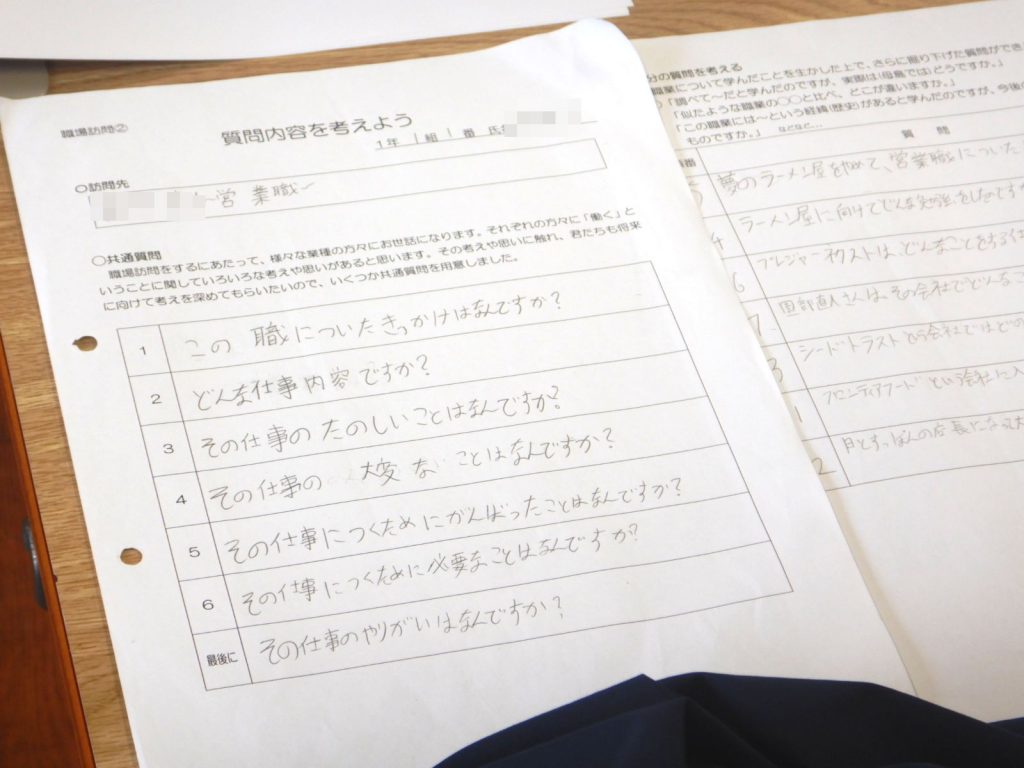 職場訪問②
質問内容を考えよう
1年 1組 1番 氏名
○訪問先
営業職
○共通質問
職場訪問をするにあたって、様々な業種の方々にお世話になります。それぞれの方々に「働く」と
いうことに関していろいろな考えや思いがあると思います。その考えや思いに触れ、君たちも将来
に向けて考えを深めてもらいたいので、いくつか共通質問を用意しました。
1 この 職についたきっかけはなんですか?
2 どんな仕事内容ですか?
3 その仕事の たのしいことはなんですか?
4 その仕事の 大変な ことはなんですか?
5 その仕事につくためにがんばったことはなんですか?
6 その仕事につくために必要なことはなんですか?
最後に その仕事のやりがいはなんですか?
分の質問を考える
職業について学んだことを生かした上で、さらに掘り下げた質問ができ
「調べて~だと学んだのですが、実際は(母島では)どうですか。」
「似たような職業の○○と比べ、どこが違いますか。」
「この職業には~という経緯(歴史)があると学んだのですが、今後
ものですか。」 などなど…
番 質 問
5 夢のラーメン屋をやめて、営業職についた
4 ラーメン屋に向けてどんな
6 は、どんなことをする
7 さんは、その会社でどんなこ
3 シードトラストという会社ではどの
1 フロンティアフードという会社に入
2 月とすっぽんの店長になり